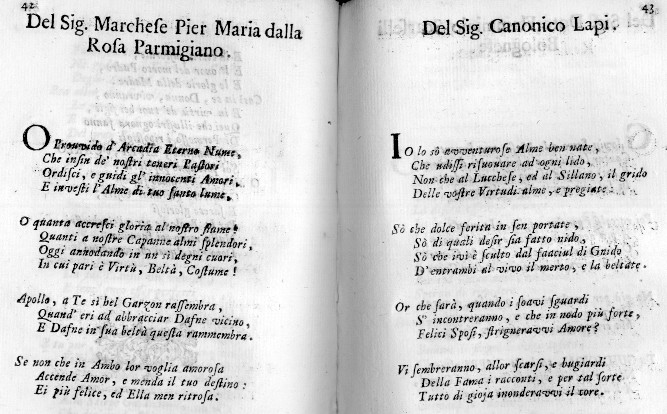 42
Del Sig. Marchese Pier Maria dalla
Rosa Parmigiano.
O Provvido d'Arcadia Eterno Nume,
Che insin de' nostri teneri Pastori
Ordisci, e guidi gl' innocenti Amori,
E investi l'Alme di tuo santo lume,
O quanta accresci gloria al nostro fiume!
Quanti a nostre Capanne almi splendori,
Oggi annodando in un sì degni cuori,
In cui pari è Virtù, Beltà, Costume!
Apollo, a Te sì bel Garzon rassembra,
Quand' eri ad abbracciar Dafne vicino,
E Dafne in sua beltà questa rammembra.
Se non che in Ambo lor voglia amorosa
Accende Amor, e menda il tuo destino:
Ei più felice, ed Ella men ritrosa.
43
Del Sig. Canonico Lapi.
IO lo sò avventurose Alme ben nate,
Che udissi risuonare ad ogni lido,
Non che al Lucchese, ed al Sillano, il grido
Delle vostre Virtudi alme, e pregiate:
Sò che dolce ferita in sen portate,
Sò di quali desir sia fatto nido,
Sò che ivi è sculto dal fanciul di Gnido
D'entrambi al vivo il merto, e la beltate.
Or che sarà, quando i soavi sguardi
S' incontreranno, e che in nodo più forte,
Felici Sposi, strigneravvi Amore?
Vi sembreranno, allor scarsi, e bugiardi
Della Fama i racconti, e per tal sorte
Tutto di gioja inonderavvi il core.